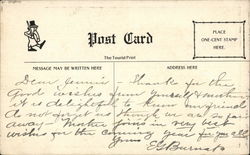 Post Card
PLACE
ONE-CENT STAMP
HERE
The Tourist Print
MESSAGE MAY BE WRITTEN HERE
ADDRESS HERE
Dear Thanks for the
Good wishes from yourself & mother
it is delightful to know our friends
do not forget us though we are so far
away. Mother joins in my best
wishes for the coming year for you all
Yours
E G Burnet